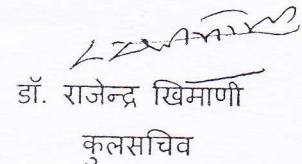 डॉ. राजेन्द्र खिमाणी
कुलसचिव